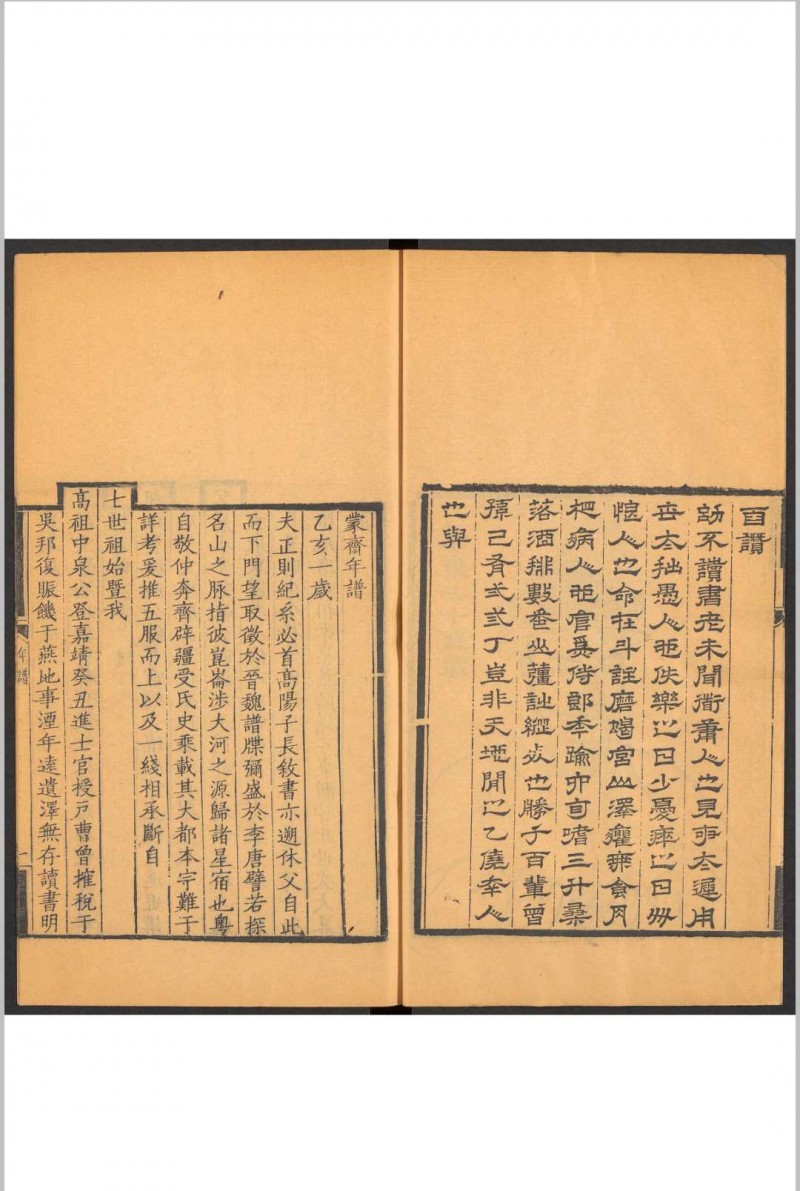 讚
幼不讀書老未聞衜庸人也見事太遲用
世太拙愚人也佚樂之日少憂瘁之日
恨人也命在斗註磨蝎宮山澤癯無食肉
病人也官爲侍郎年踰六旬嗜三升桑
落酒排數坐也勝于百輩曾
孫已有弍弍丁豈非天地閒之乙僥幸人
也與
蒙齋年譜
乙亥一歲
夫正則紀系必首高陽子長敘書亦遡休父自此
而下門望取徵於晉魏譜牒彌盛於李唐譬若探
名山之脉指彼崑崙涉大河之源歸諸星宿也粵
自敬仲奔齊辟疆受氏史乘載其大都本宗難于
詳考爰推五服而上以及一綫相承斷自
七世祖始暨我
高祖中泉公登嘉靖癸丑進士官授戶曹曾搉稅于
吳邦復賑饑于燕地事湮年遠遺澤無存讀書明
年譜
一